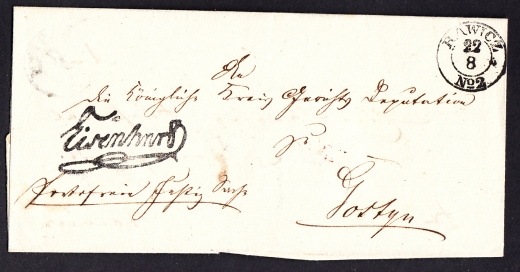 RAWICZ
22
8
No 2.
An
die Königliche Kreis Gerichts Deputation
zu
Gostyn
Portofreie Justiz Sache